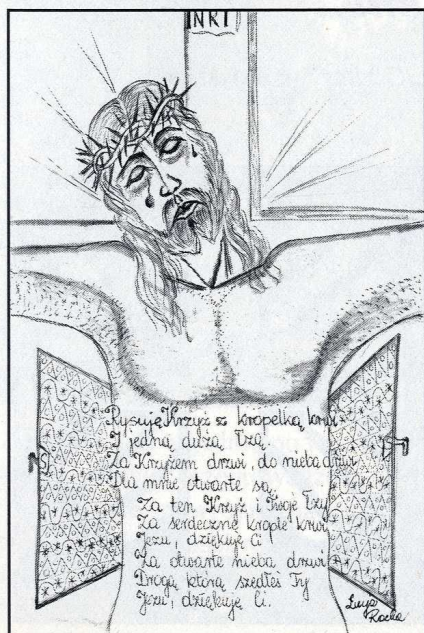 INRI
Rysuję Krzyż z kropelką krwi
I jedną dużą łzą.
Za Krzyżem drzwi, do nieba drzwi
Dla mnie otwarte są.
Za ten Krzyż i Twoje łzy
Za serdeczne kropie krwi
Jezu, dziękuję Ci
Za otwarte nieba drzwi
Drogą którą szedłeś Ty
Jezu, dziękuję Ci.